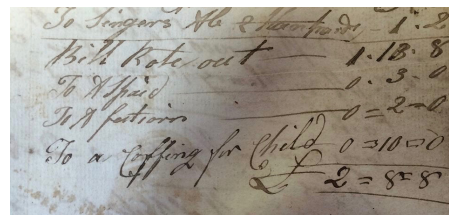 To Singers Ale & - 1 . 2
Bill Rote out 1 . 13 . 8
To A Spaid 0 . 3 . 0
To A 0 = 2 = 0
To a Coffing for Child 0 = 10 = 0
£ 2 = 8 = 8